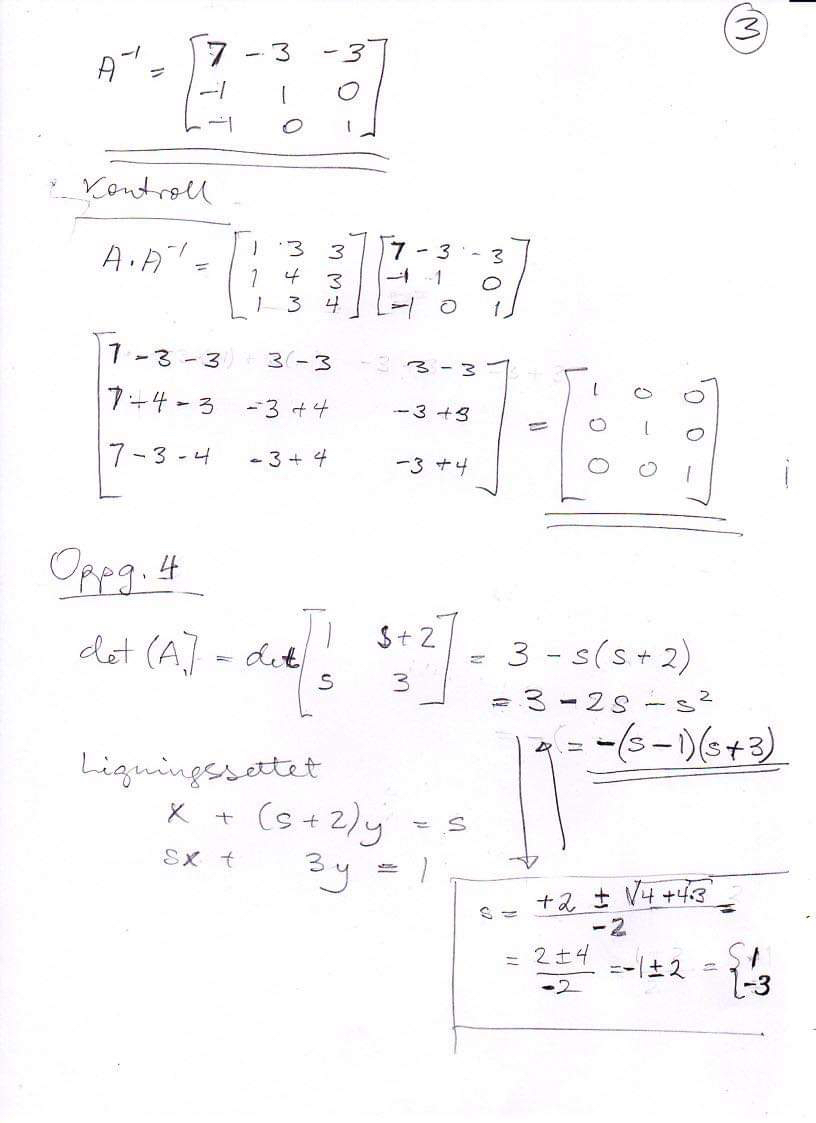 3
A⁻¹ = [7 -3 -3
-1 1 0
-1 0 1]
Kontroll
A·A⁻¹ = [1 3 3 [7 -3 -3
1 4 3 -1 1 0
1 3 4] -1 0 1]
[7-3-3 3-3 3-3
7-4-3 -3+4 -3+3 = [1 0 0
7-3-4 -3+4 -3+4] 0 1 0
0 0 1]
Oppg. 4
det(A) = det[1 s+2 = 3 - s(s+2)
s 3] = 3 - 2s - s²
= -(s-1)(s+3)
Ligningssettet
x + (s+2)y = s
sx + 3y = 1
s = +2 ± √4+4·3 / -2 =
= 2±4 / -2 = -1±2 = {1
-3